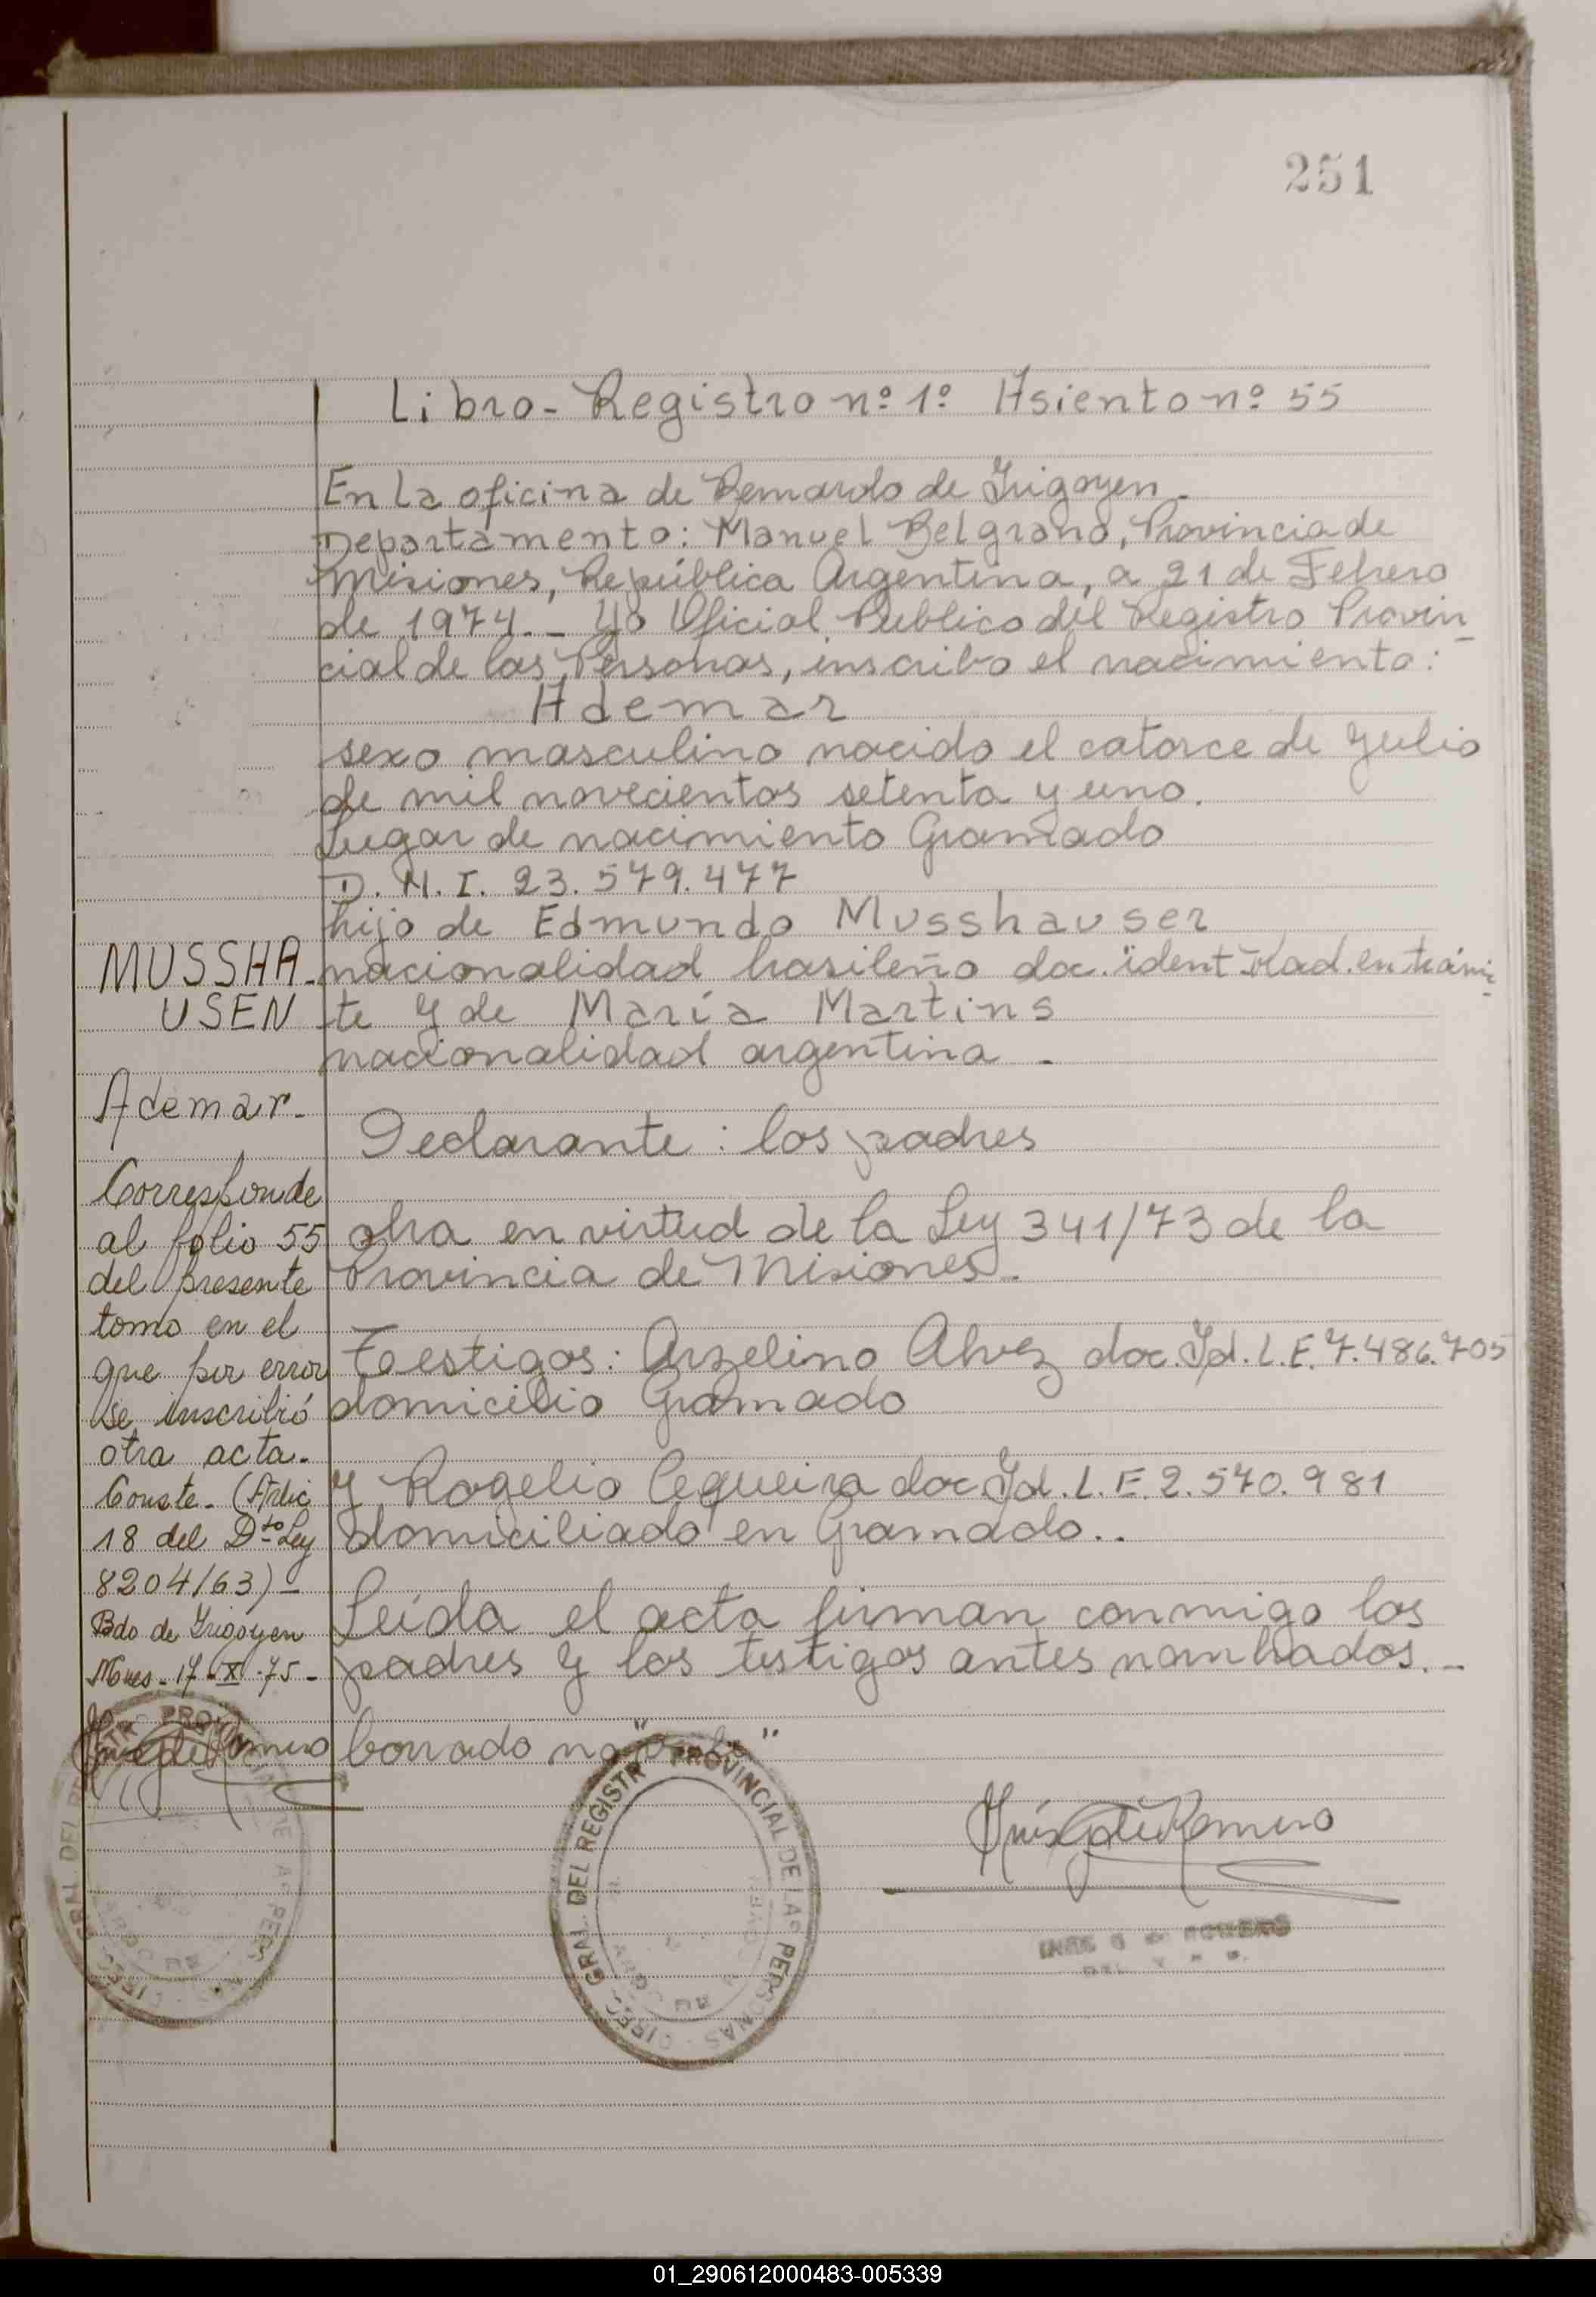 251
Libro- Registro nº 1º Asiento nº 55
En la oficina de Bernardo de Irigoyen -
Departamento: Manuel Belgrano, Provincia de
Misiones, República Argentina, a 21 de Febrero
de 1974. - Yo Oficial Publico del Registro Provin
cial de las Personas, inscribo el nacimiento:
Ademar
sexo masculino nacido el catorce de Julio
de mil novecientos setenta y uno.
Lugar de nacimiento Gramado
D. N. I. 23.579.477
hijo de Edmundo Musshauser
nacionalidad brasileño doc. identidad en trámi-
te y de María Martins
nacionalidad argentina -
Declarante: los padres
obra en virtud de la Ley 341/73 de la
Provincia de Misiones.-
Teestigos: Arzelino Alvez doc. Id. L.E. 7.486.705
domicilio Gramado
y Rogelio Cequeira doc. Id. L. E. 2.570.981
domiciliado en Gramado..
Leída el acta firman conmigo los
padres y los testigos antes nombrados.-
borrado no
MUSSHA-
USEN
Ademar-
Corresponde
al folio 55
del presente
tomo en el
que por error
se inscribió
otra acta.
Conste- (Artic
18 del Dto Ley
8204/63)-
Bdo de Irigoyen
Mnes- 17-XI-75-
DIREC. GRAL. DEL REGISTR PROVINCIAL DE LAS PERSONAS
DIREC. GRAL. DEL REGISTR PROVINCIAL DE LAS PERSONAS
Inés G de Romero
INES G de ROMERO
01_290612000483-005339